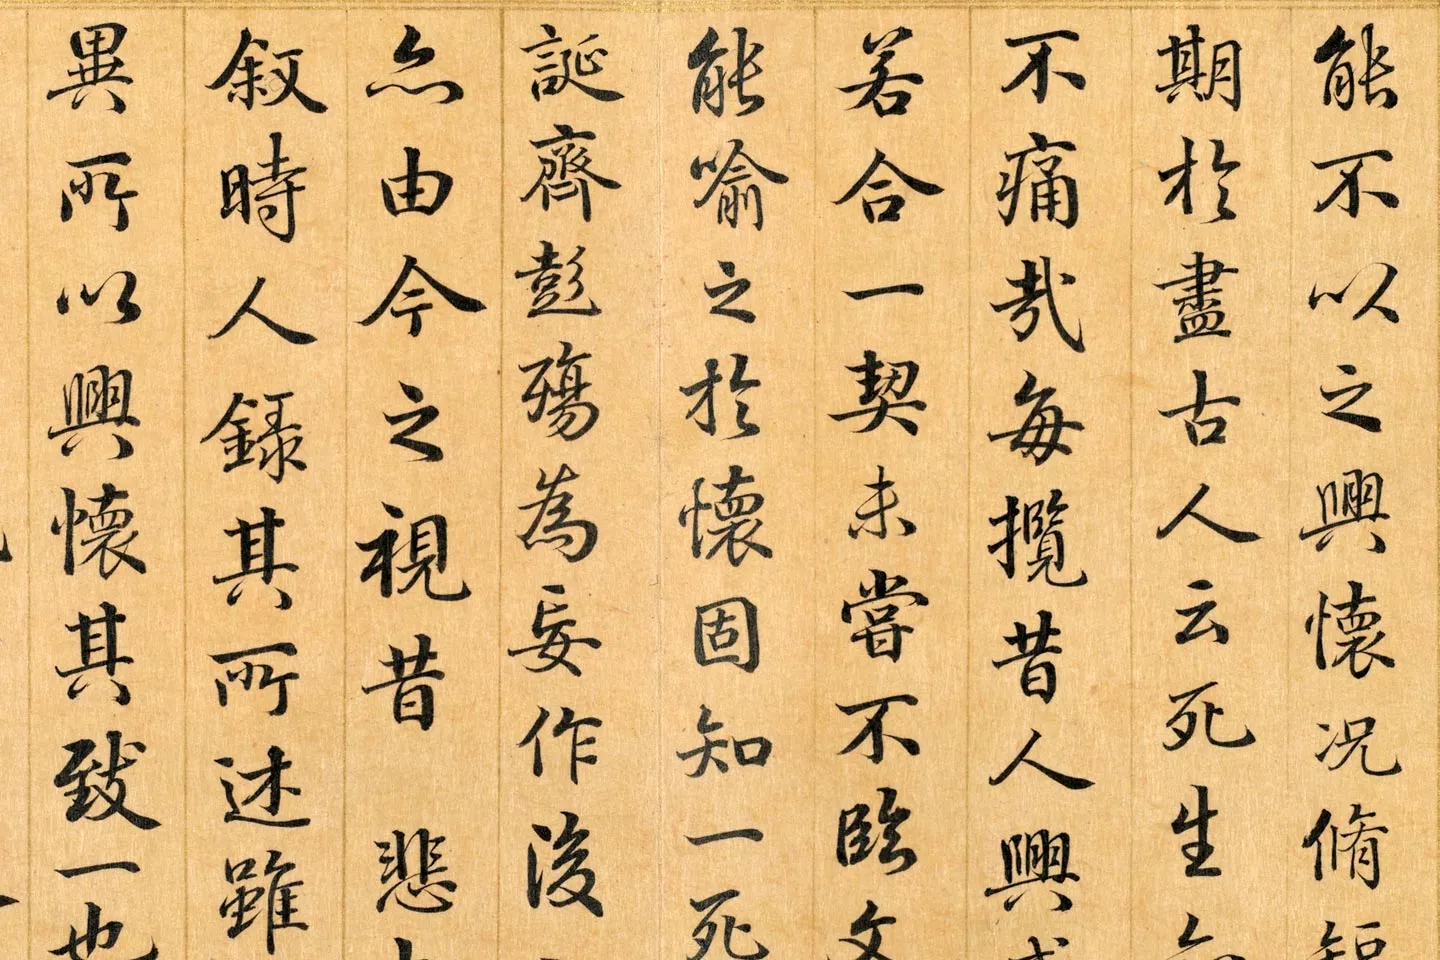 能不以之興懷況脩短
期於盡古人云死生
不痛哉每攬昔人興
若合一契未嘗不臨文
能喻之於懷固知一死
誕齊彭殤為妄作後
亦由今之視昔悲
敘時人錄其所述雖
異所以興懷其致一也